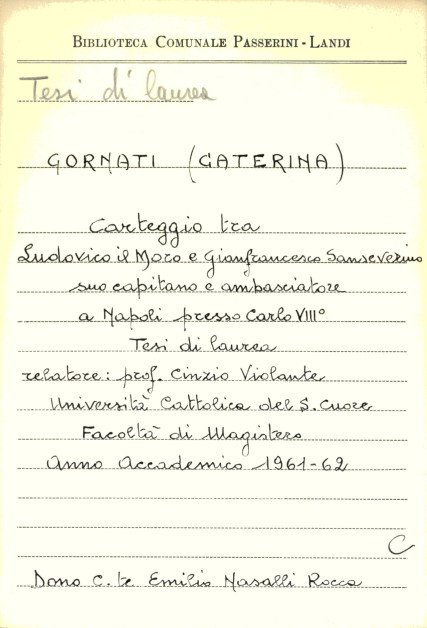 BIBLIOTECA COMUNALE PASSERINI - LANDI
Tesi di laurea
GORNATI (CATERINA)
Carteggio tra
Ludovico il Moro e Gianfrancesco Sanseverino
suo capitano e ambasciatore
a Napoli presso Carlo VIII°
Tesi di laurea
relatore: prof. Cinzio Violante
Università Cattolica del S. Cuore
Facoltà di Magistero
Anno Accademico 1961-62
C
Dono C.te Emilio Nasalli Rocca